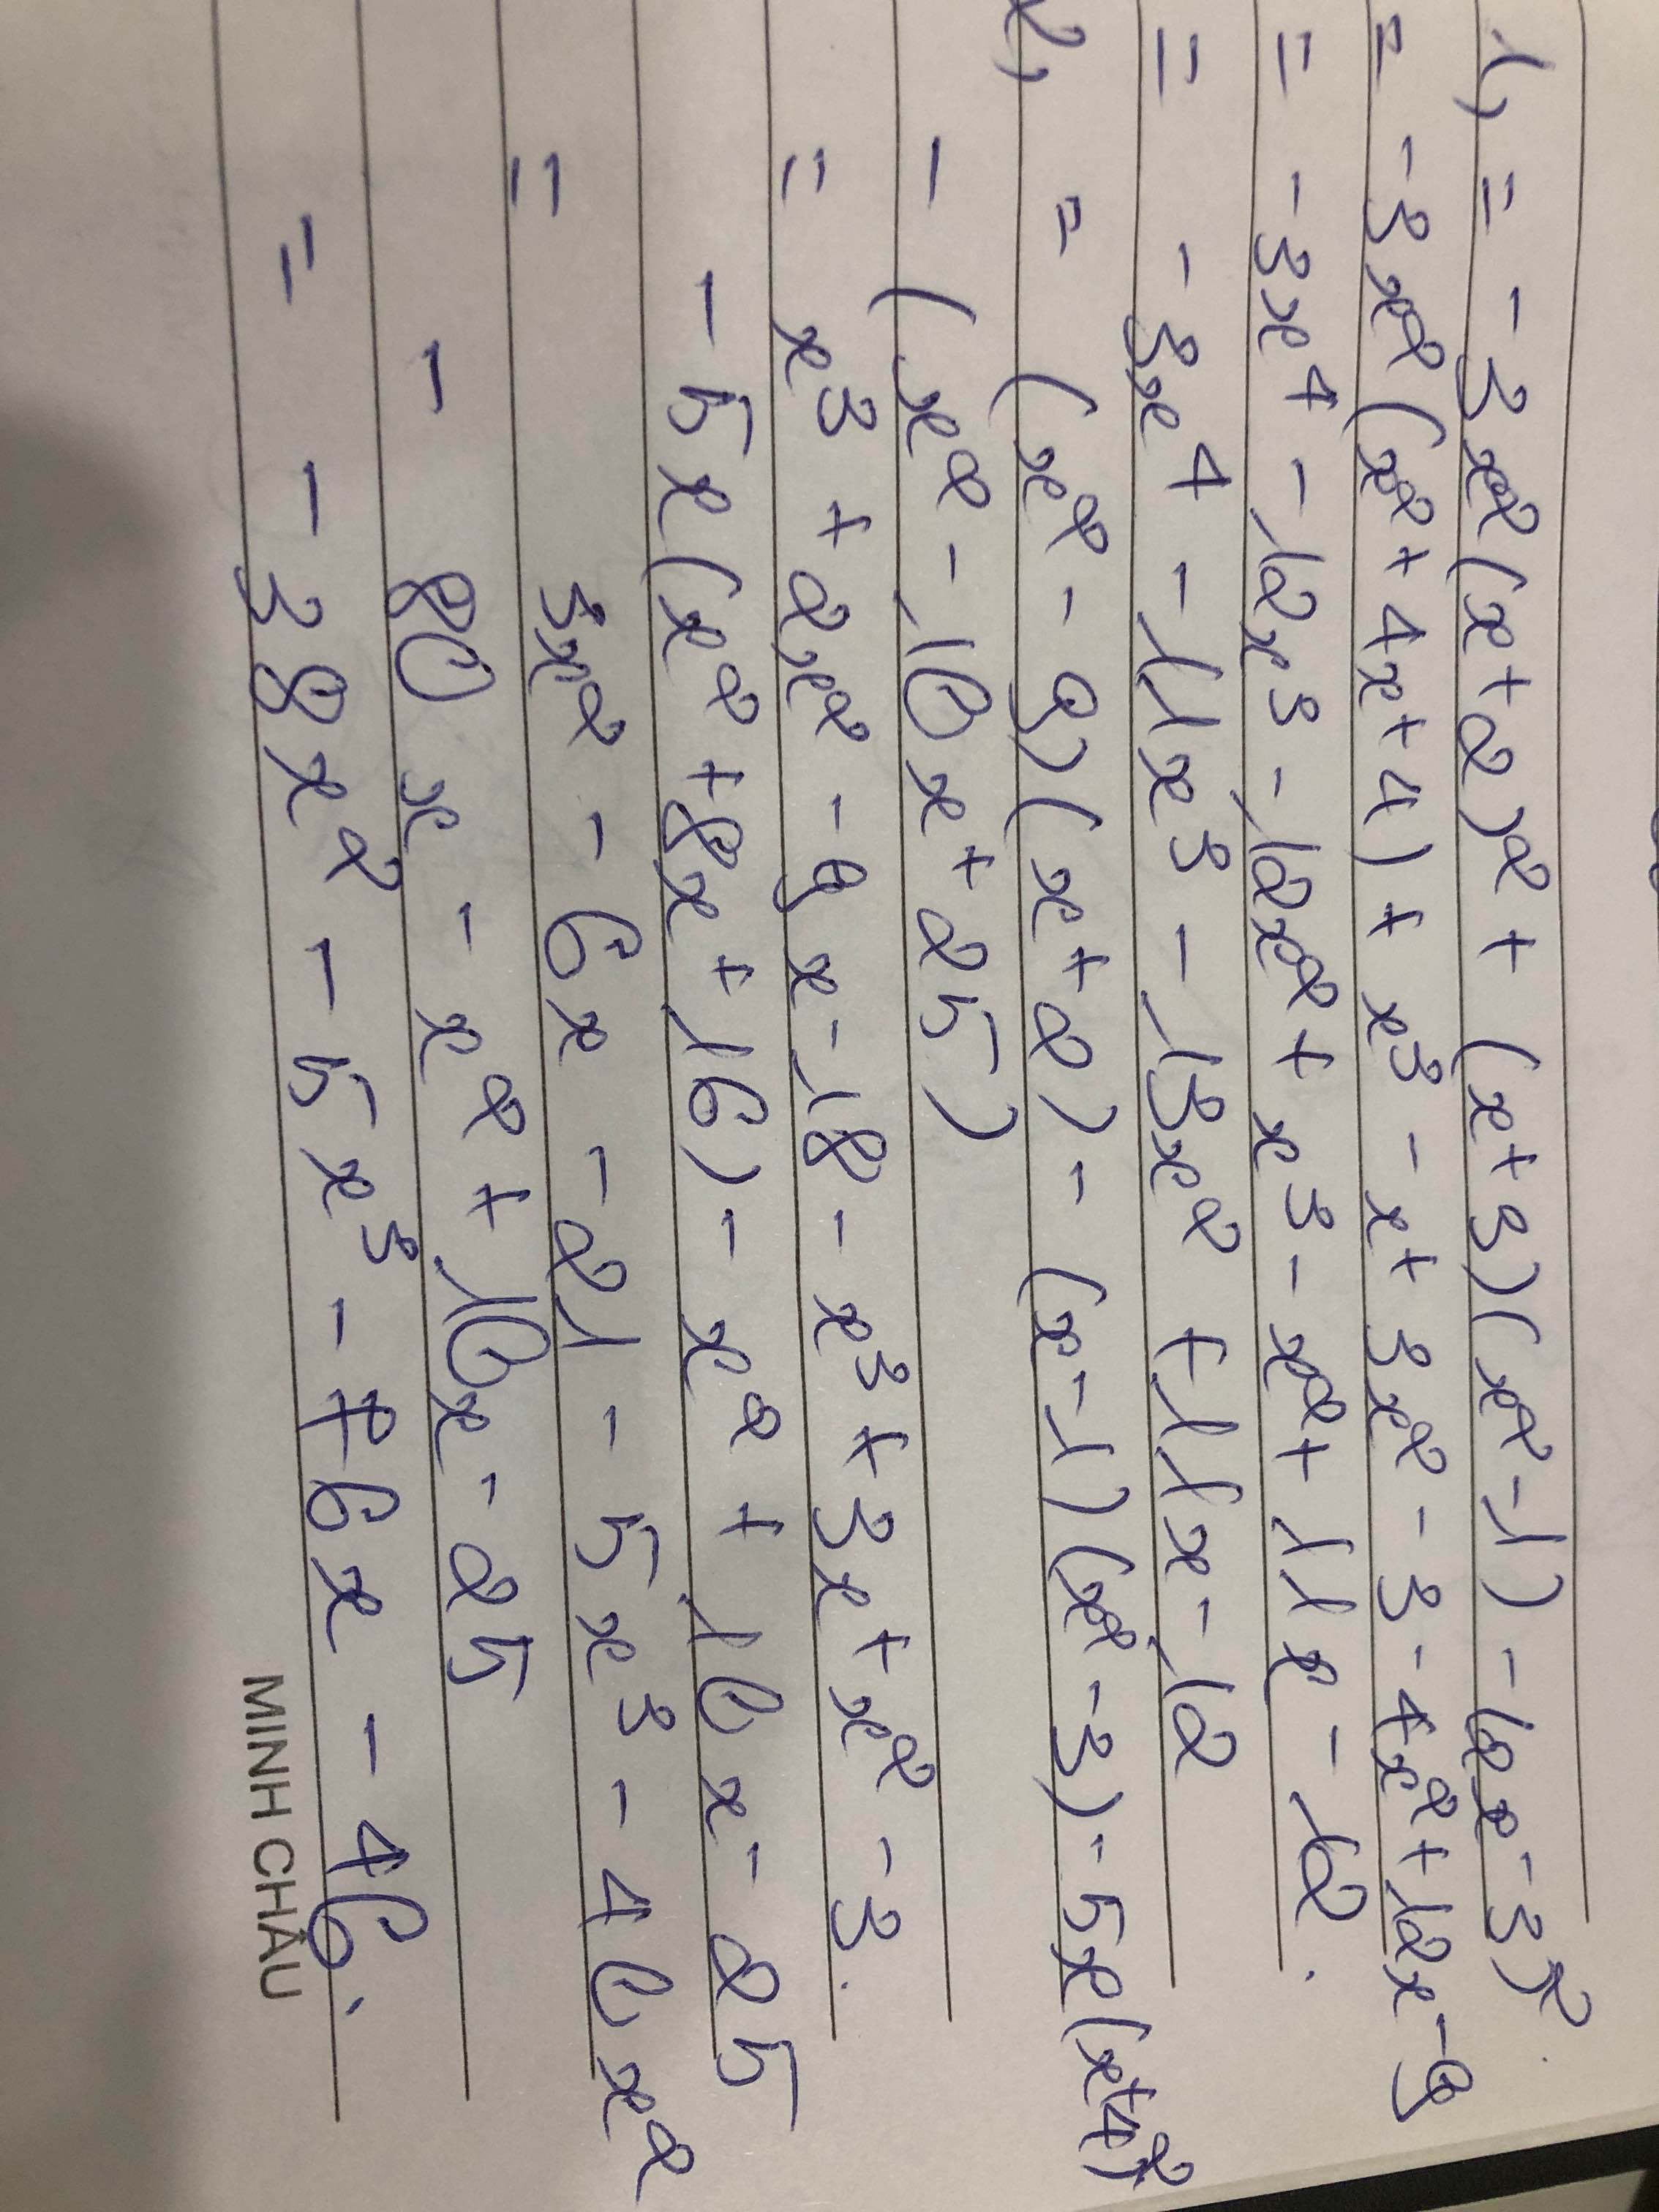 1) = -3x²(x+2)² + (x+3)(x²-1) - (2x-3)².
= -3x²(x²+4x+4) + x³ - x + 3x² - 3 - 4x² + 12x - 9
= -3x⁴ - 12x³ - 12x² + x³ - x² + 11x - 12.
= -3x⁴ - 11x³ - 13x² + 11x - 12
2) = (x² - 9)(x+2) - (x-1)(x²-3) - 5x(x+4)²
- (x² - 10x + 25)
= x³ + 2x² - 9x - 18 - x³ + 3x + x² - 3.
- 5x(x² + 8x + 16) - x² + 10x - 25
= 3x² - 6x - 21 - 5x³ - 40x²
- 80x - x² + 10x - 25
= - 38x² - 5x³ - 76x - 46.
MINH CHÂU